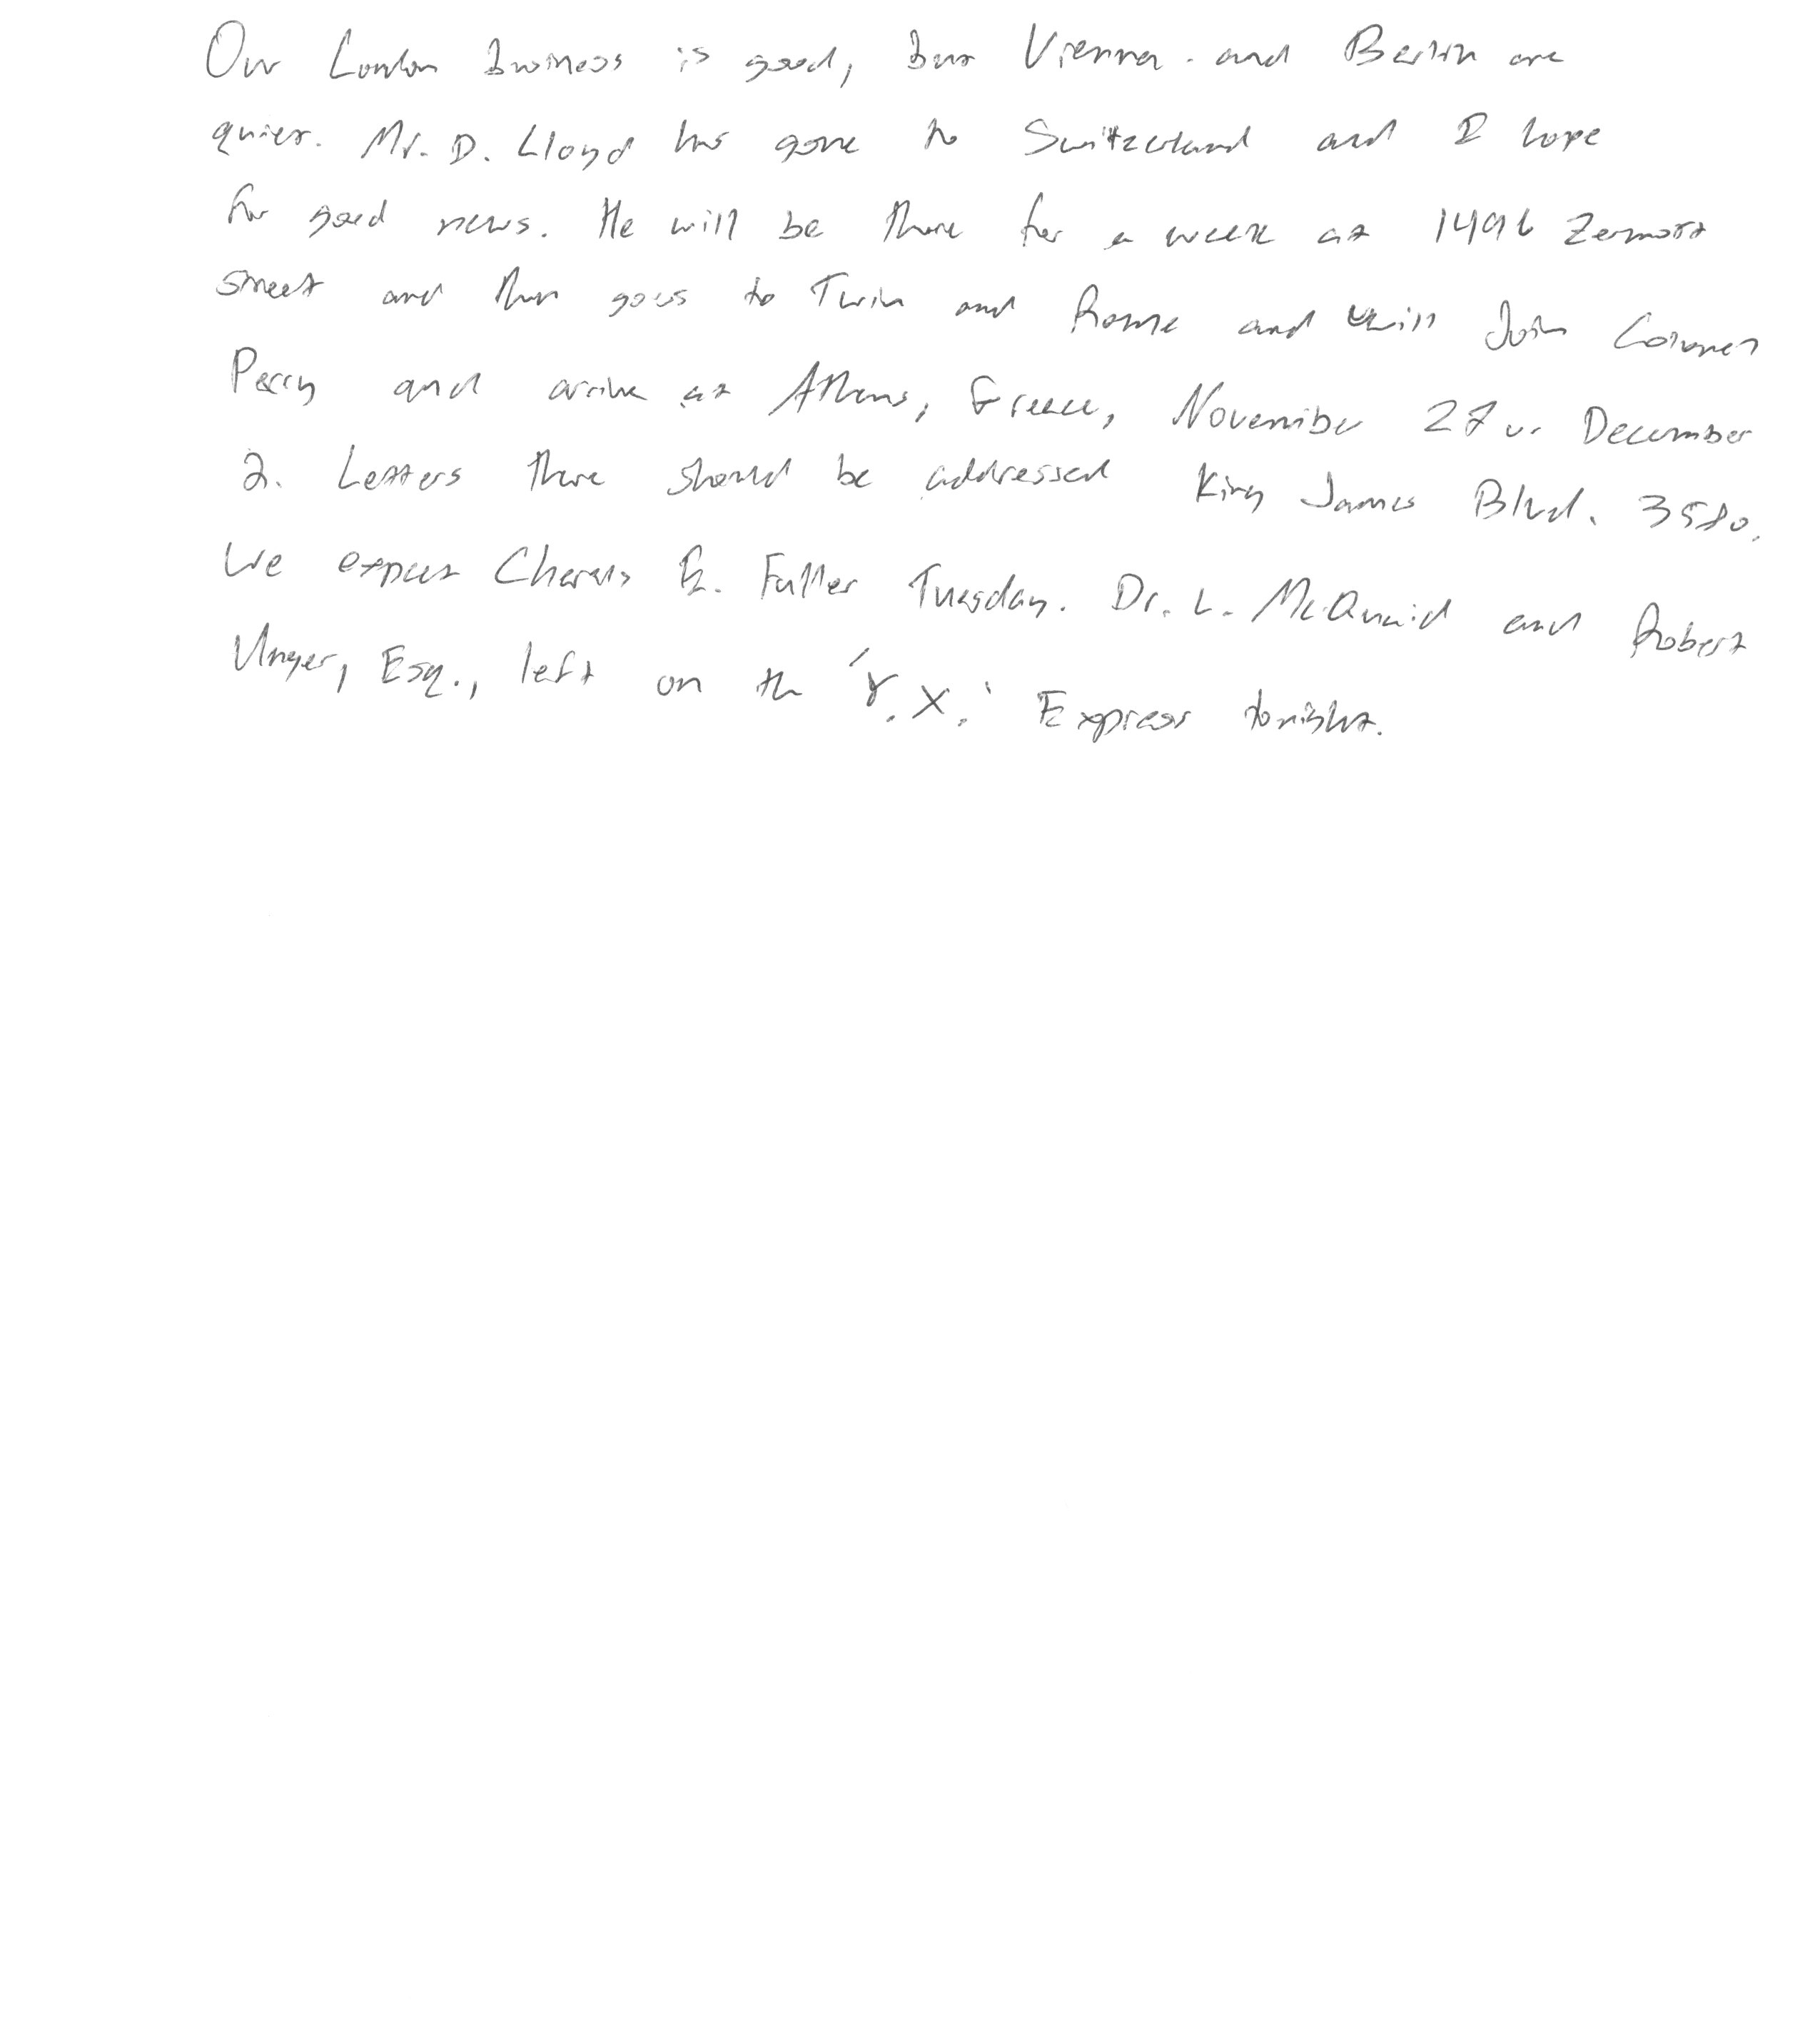 Our London business is good, but Vienna and Berlin are
quiet. Mr. D. Lloyd has gone to Switzerland and I hope
for good news. He will be there for a week at 1496 Zermott
street and then goes to Turin and Rome and will Join Colonel
Perry and arrive at Athens, Greece, November 27 or December
2. Letters there should be addressed King James Blvd. 3580.
We expect Charles E. Fuller Tuesday. Dr. L. McQuaid and Robert
Unger, Esq., left on the 'Y.X.' Express tonight.